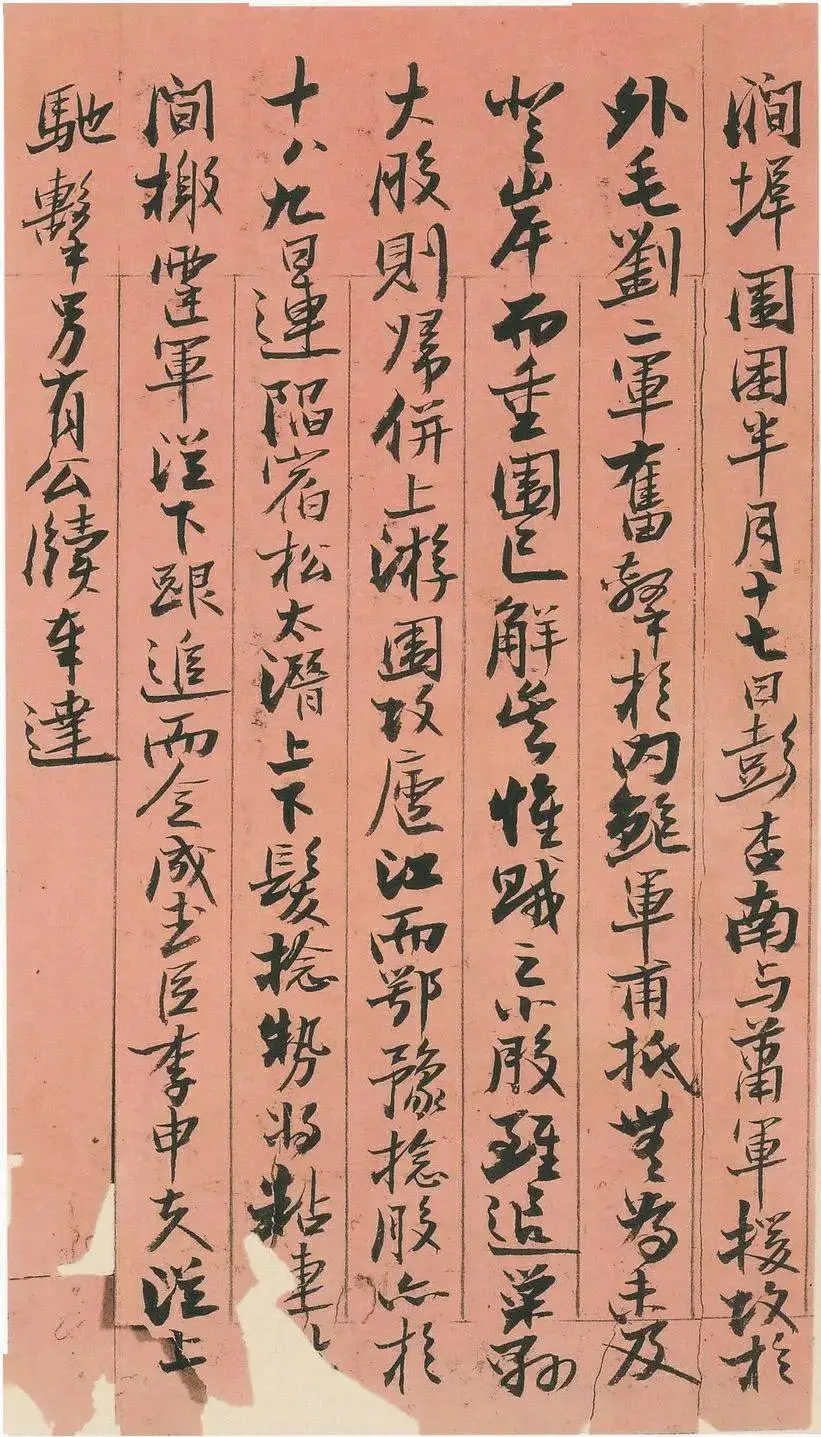 澗埠圍困半月十七日彭杏南与蕭軍援攻於
外毛劉二軍奮擊於內鮑軍甫抵無為未及
登岸而重圍已解矣惟賊之小股雖退巢縣
大股則歸併上游圍攻廬江而鄂豫捻股亦於
十八九日連陷宿松太潛上下髮捻勢將粘連
間檄霆軍從下跟追而令成武臣李申夫從上
馳擊另有公牘奉達